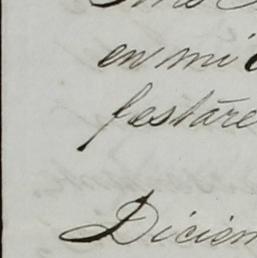 en mi
festare
Diciem